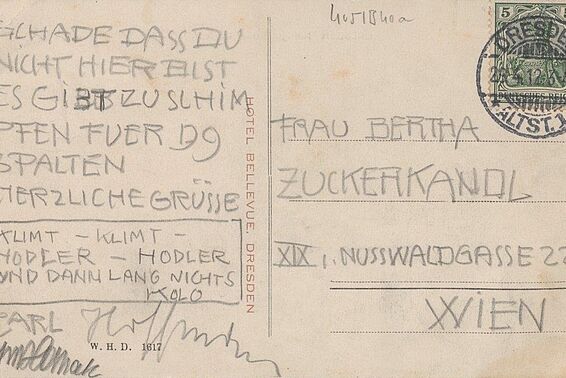 SCHADE DASS DU
NICHT HIER BIST
ES GIBT ZU SCHIM
PFEN FUER D9
SPALTEN
HERZLICHE GRÜSSE
KLIMT – KLIMT –
HODLER – HODLER
UND DANN LANG NICHTS
KOLO
CARL
Hoffmann
W. H. D. 1617
HOTEL BELLEVUE. DRESDEN
5
DRESDEN
ALTST. 1
FRAU BERTHA
ZUCKERKANDL
XIX, NUSSWALDGASSE 22
WIEN